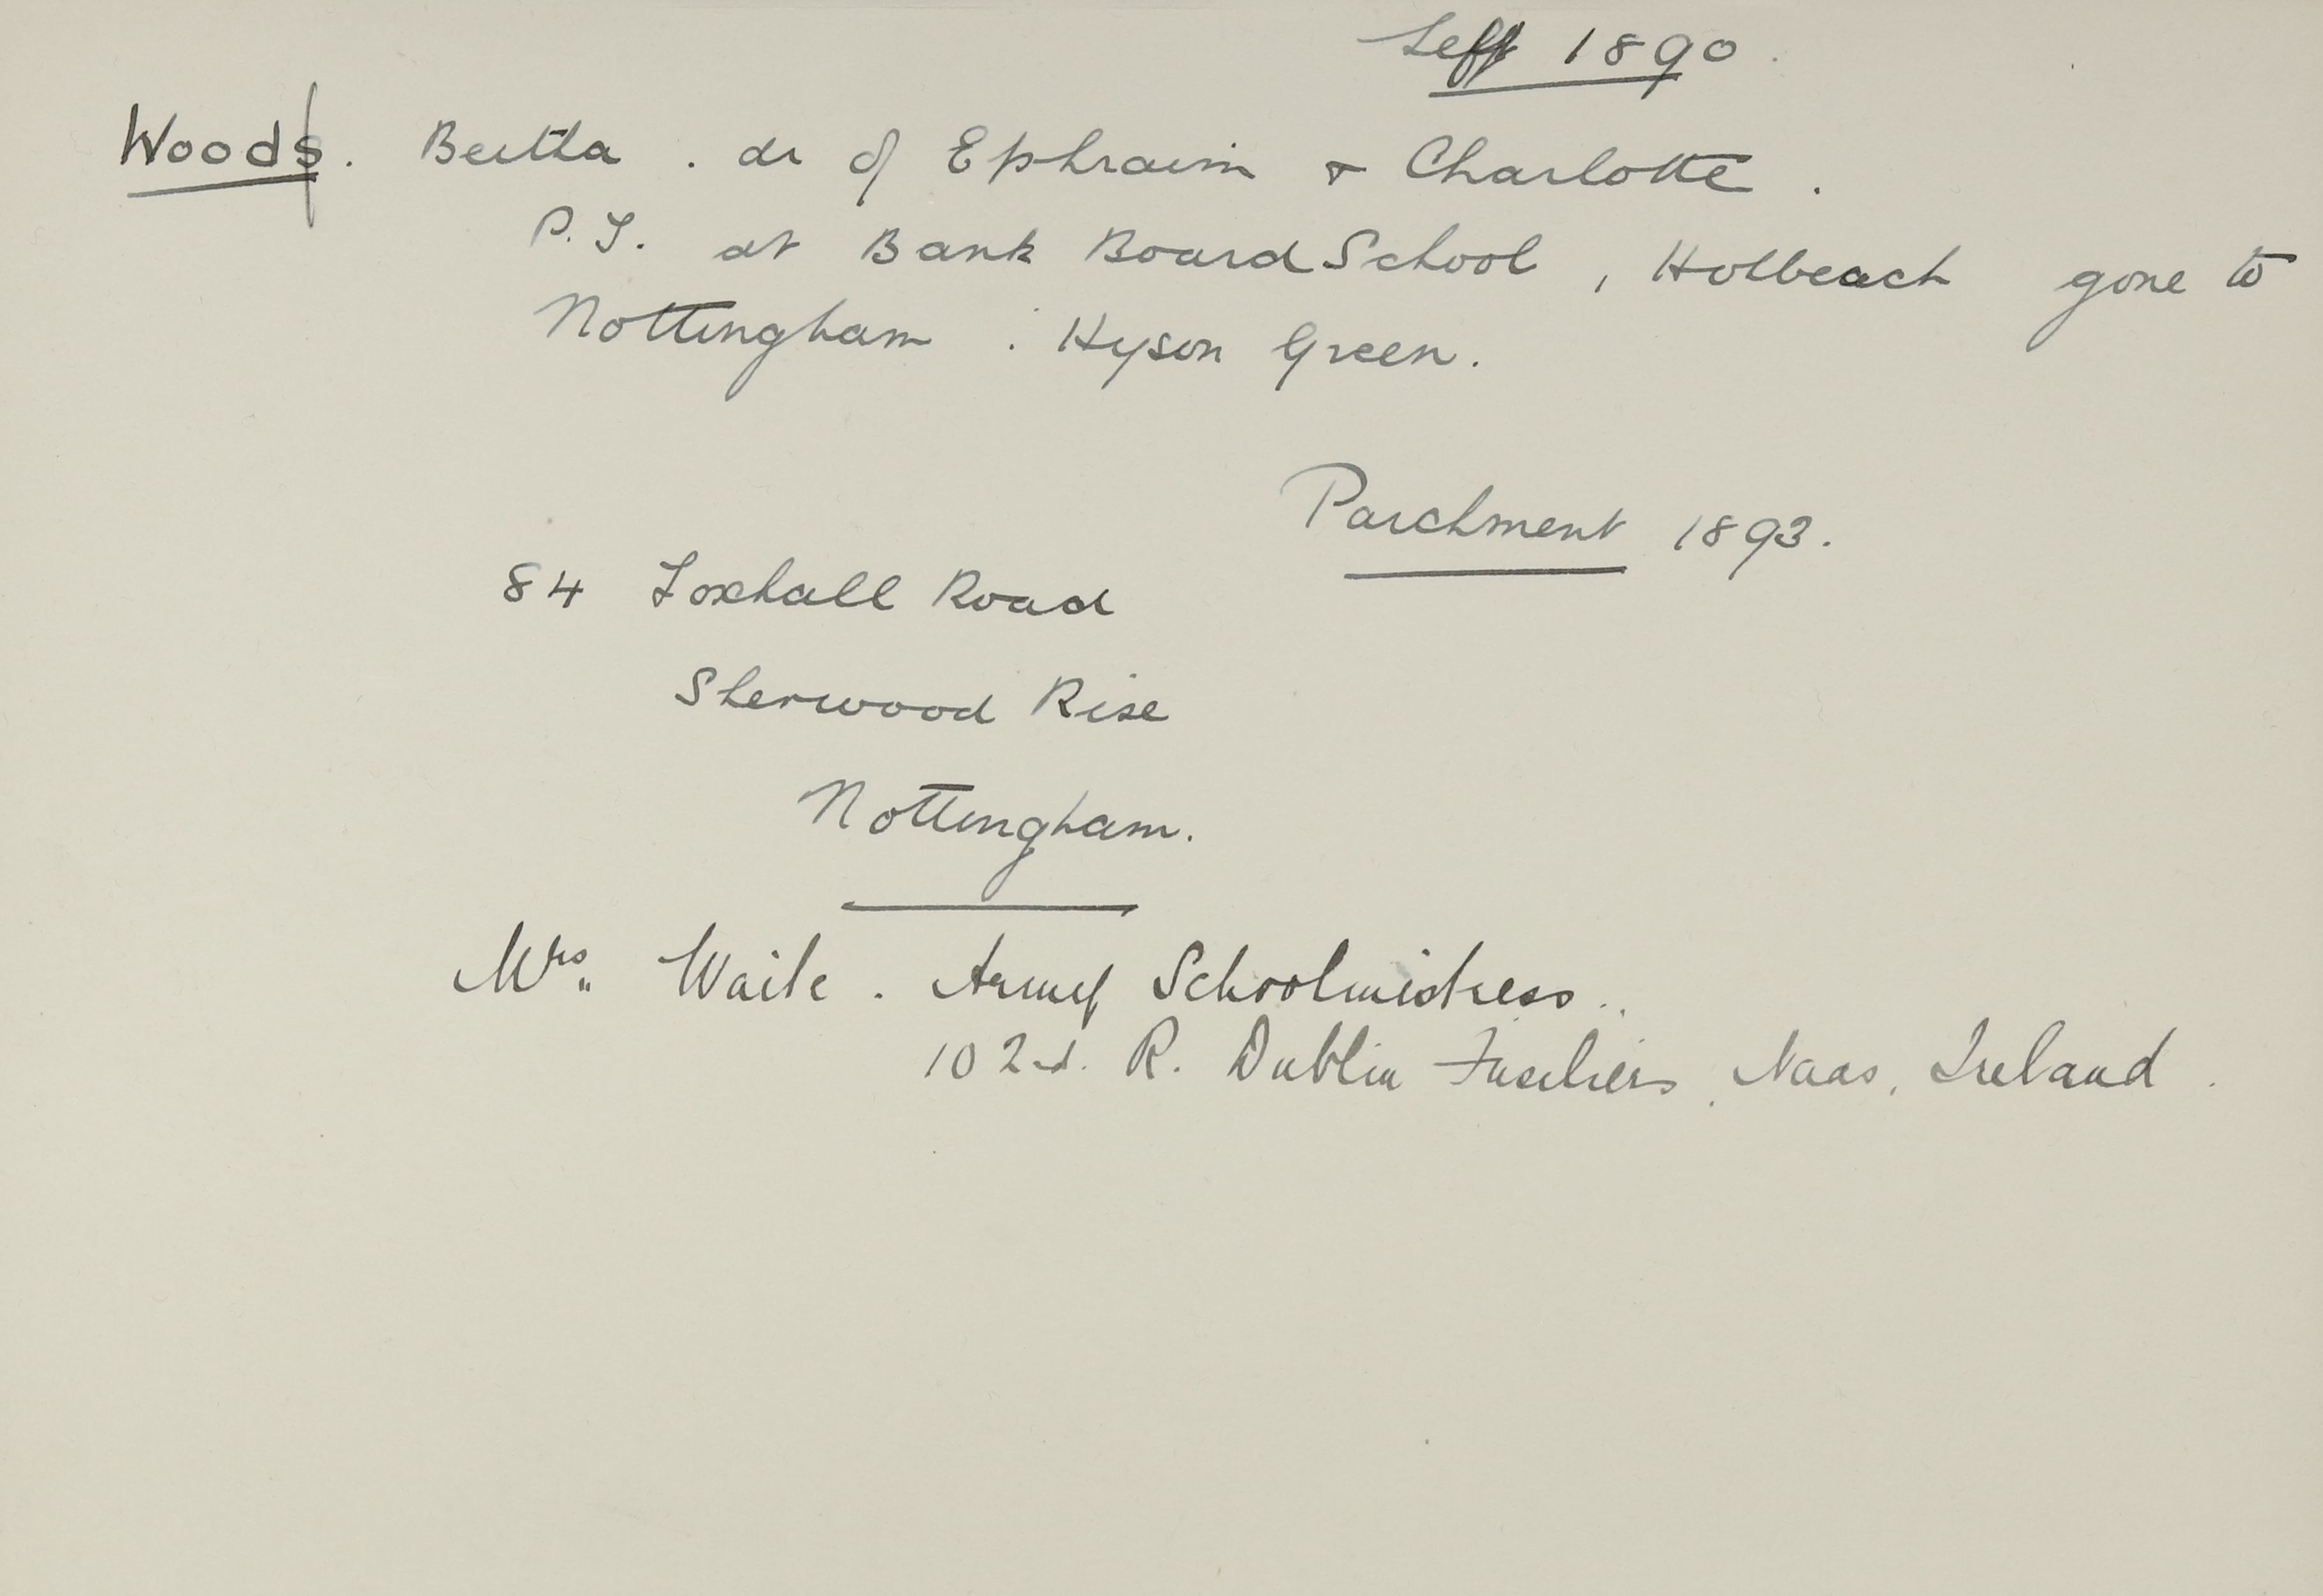 Left 1890.
Wood. Bertha. dr of Ephraim & Charlotte.
P.T. at Bank Board School, Holbeach gone to
Nottingham. Hyson Green.
Parchment 1893.
84 Foxhall Road
Sherwood Rise
Nottingham.
Mrs. Waite. Army Schoolmistress.
102d. R. Dublin Fusiliers, Naas, Ireland.